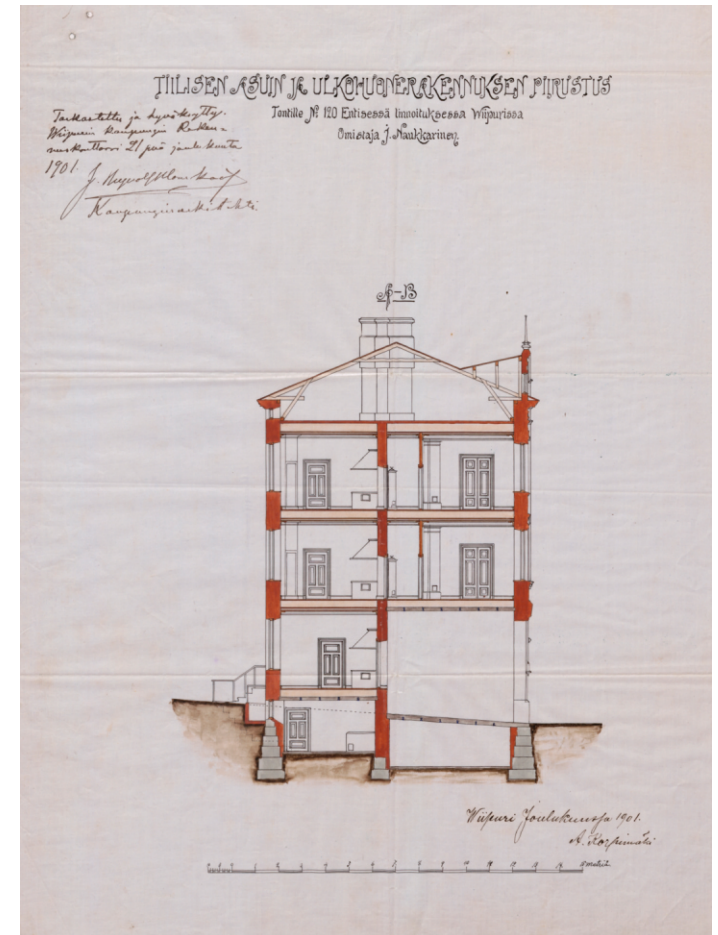 TIILISEN ASUIN JA ULKOHUONERAKENNUKSEN PIIRUSTUS
Tontille № 120 Entisessä linnoituksessa Wiipurissa
Omistaja J. Naukkarinen.
Tarkastettu ja hyväksytty.
Wiipurin kaupungin Raken-
nuskonttorri 21 p:nä joulukuuta
1901.
Kaupunginarkitehti.
A-B
Wiipuri Joulukuussa 1901.
A. Korpimäki
metriä